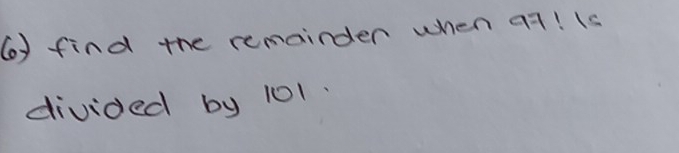 6) find the remainder when 97! is
divided by 101.